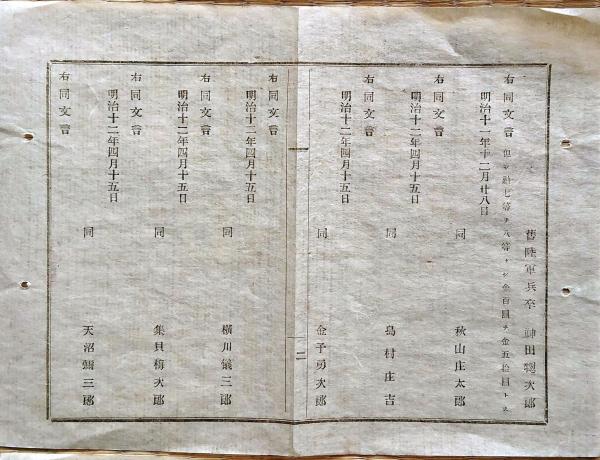 舊陸軍兵卒 神田惣次郎
右同文言 但シ勲七等ヲ八等トシ金百圓ヲ金五拾圓トス
明治十一年十二月廿八日
同 秋山庄太郎
右同文言
明治十二年四月十五日
同 島村庄吉
右同文言
明治十二年四月十五日
同 金子勇次郎
二
右同文言
明治十二年四月十五日
同 横川儀三郎
右同文言
明治十二年四月十五日
同 集貝梅次郎
右同文言
明治十二年四月十五日
同 天沼彌三郎
右同文言